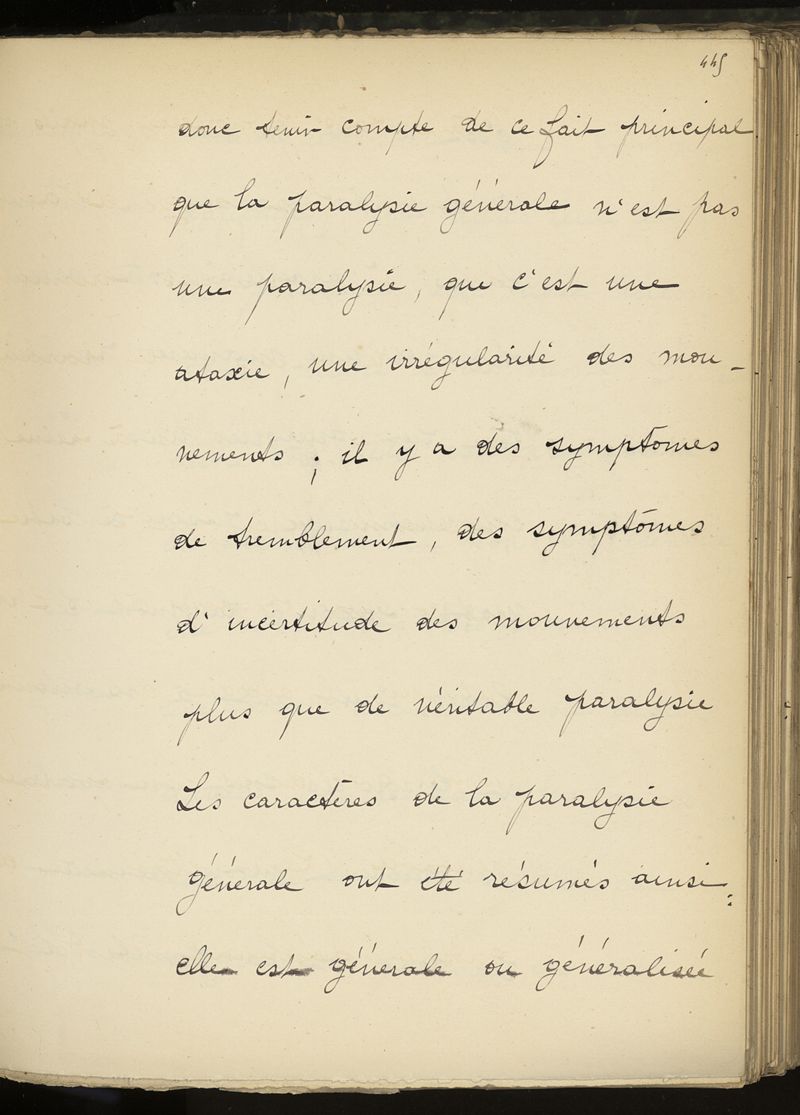 445
donc tenir compte de ce fait principal
que la paralysie générale n'est pas
une paralysie, que c'est une
ataxie, une irrégularité des mou-
vements ; il y a des symptômes
de tremblement, des symptômes
d'incertitude des mouvements
plus que de véritable paralysie
Les caractères de la paralysie
générale ont été résumés ainsi :
elle est générale ou généralisée